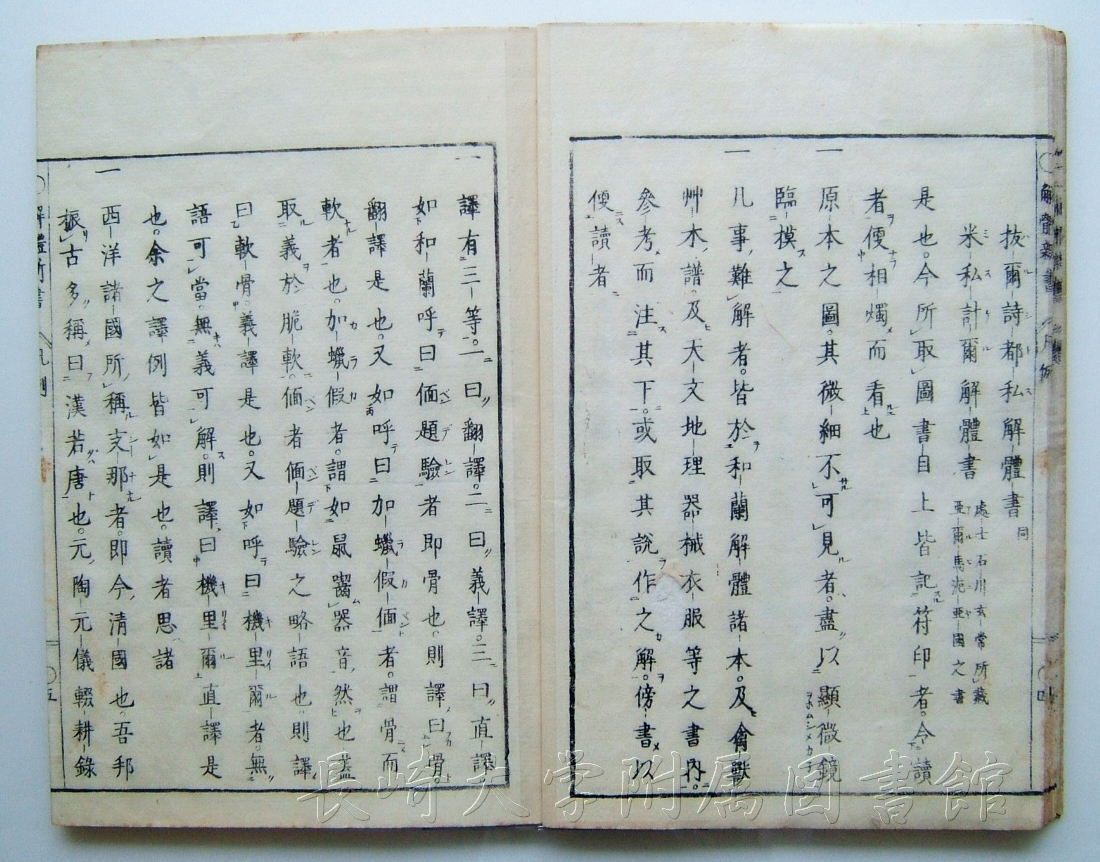 拔爾詩都私解體書 同
米私計爾解體書 處士石川玄常所藏
亞爾馬泥亜國之書
是也。今所取圖書自上皆記符印者。今讀
者便相燭而看也
一 原本之圖。其微細不可見者。盡以顯微鏡
臨模之
一 凡事難解者。皆於和蘭解體諸本。及禽獸
艸木譜。及天文地理器械衣服等之書内。
參考而注其下。或取其說作之解。傍書以
便讀者
一 譯有三等。一曰翻譯。二曰義譯。三曰直譯
如和蘭呼曰偭題驗者即骨也。則譯曰骨。
翻譯是也。又如呼曰加蠟假偭者。謂骨而
軟者也。加蠟假者。謂如鼠囓器音然也。蓋
取義於脆軟。偭者偭題驗之略語也。則譯
曰軟骨。義譯是也。又如呼曰機里爾者。無
語可當。無義可解。則譯曰機里爾。直譯是
也。余之譯例皆如是也。讀者思諸
一 西洋諸國所稱支那者。即今清國也。吾邦
振古多稱曰漢若唐也。元陶元儀輟耕錄
解體新書 凡例 五
長崎大学附属図書館